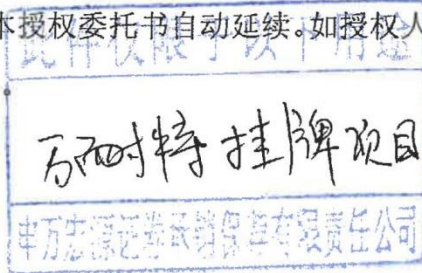 本授权委托书自动延续。如授权人
此件仅限于以下用途
万耐特挂牌项目
申万宏源证券承销保荐有限责任公司